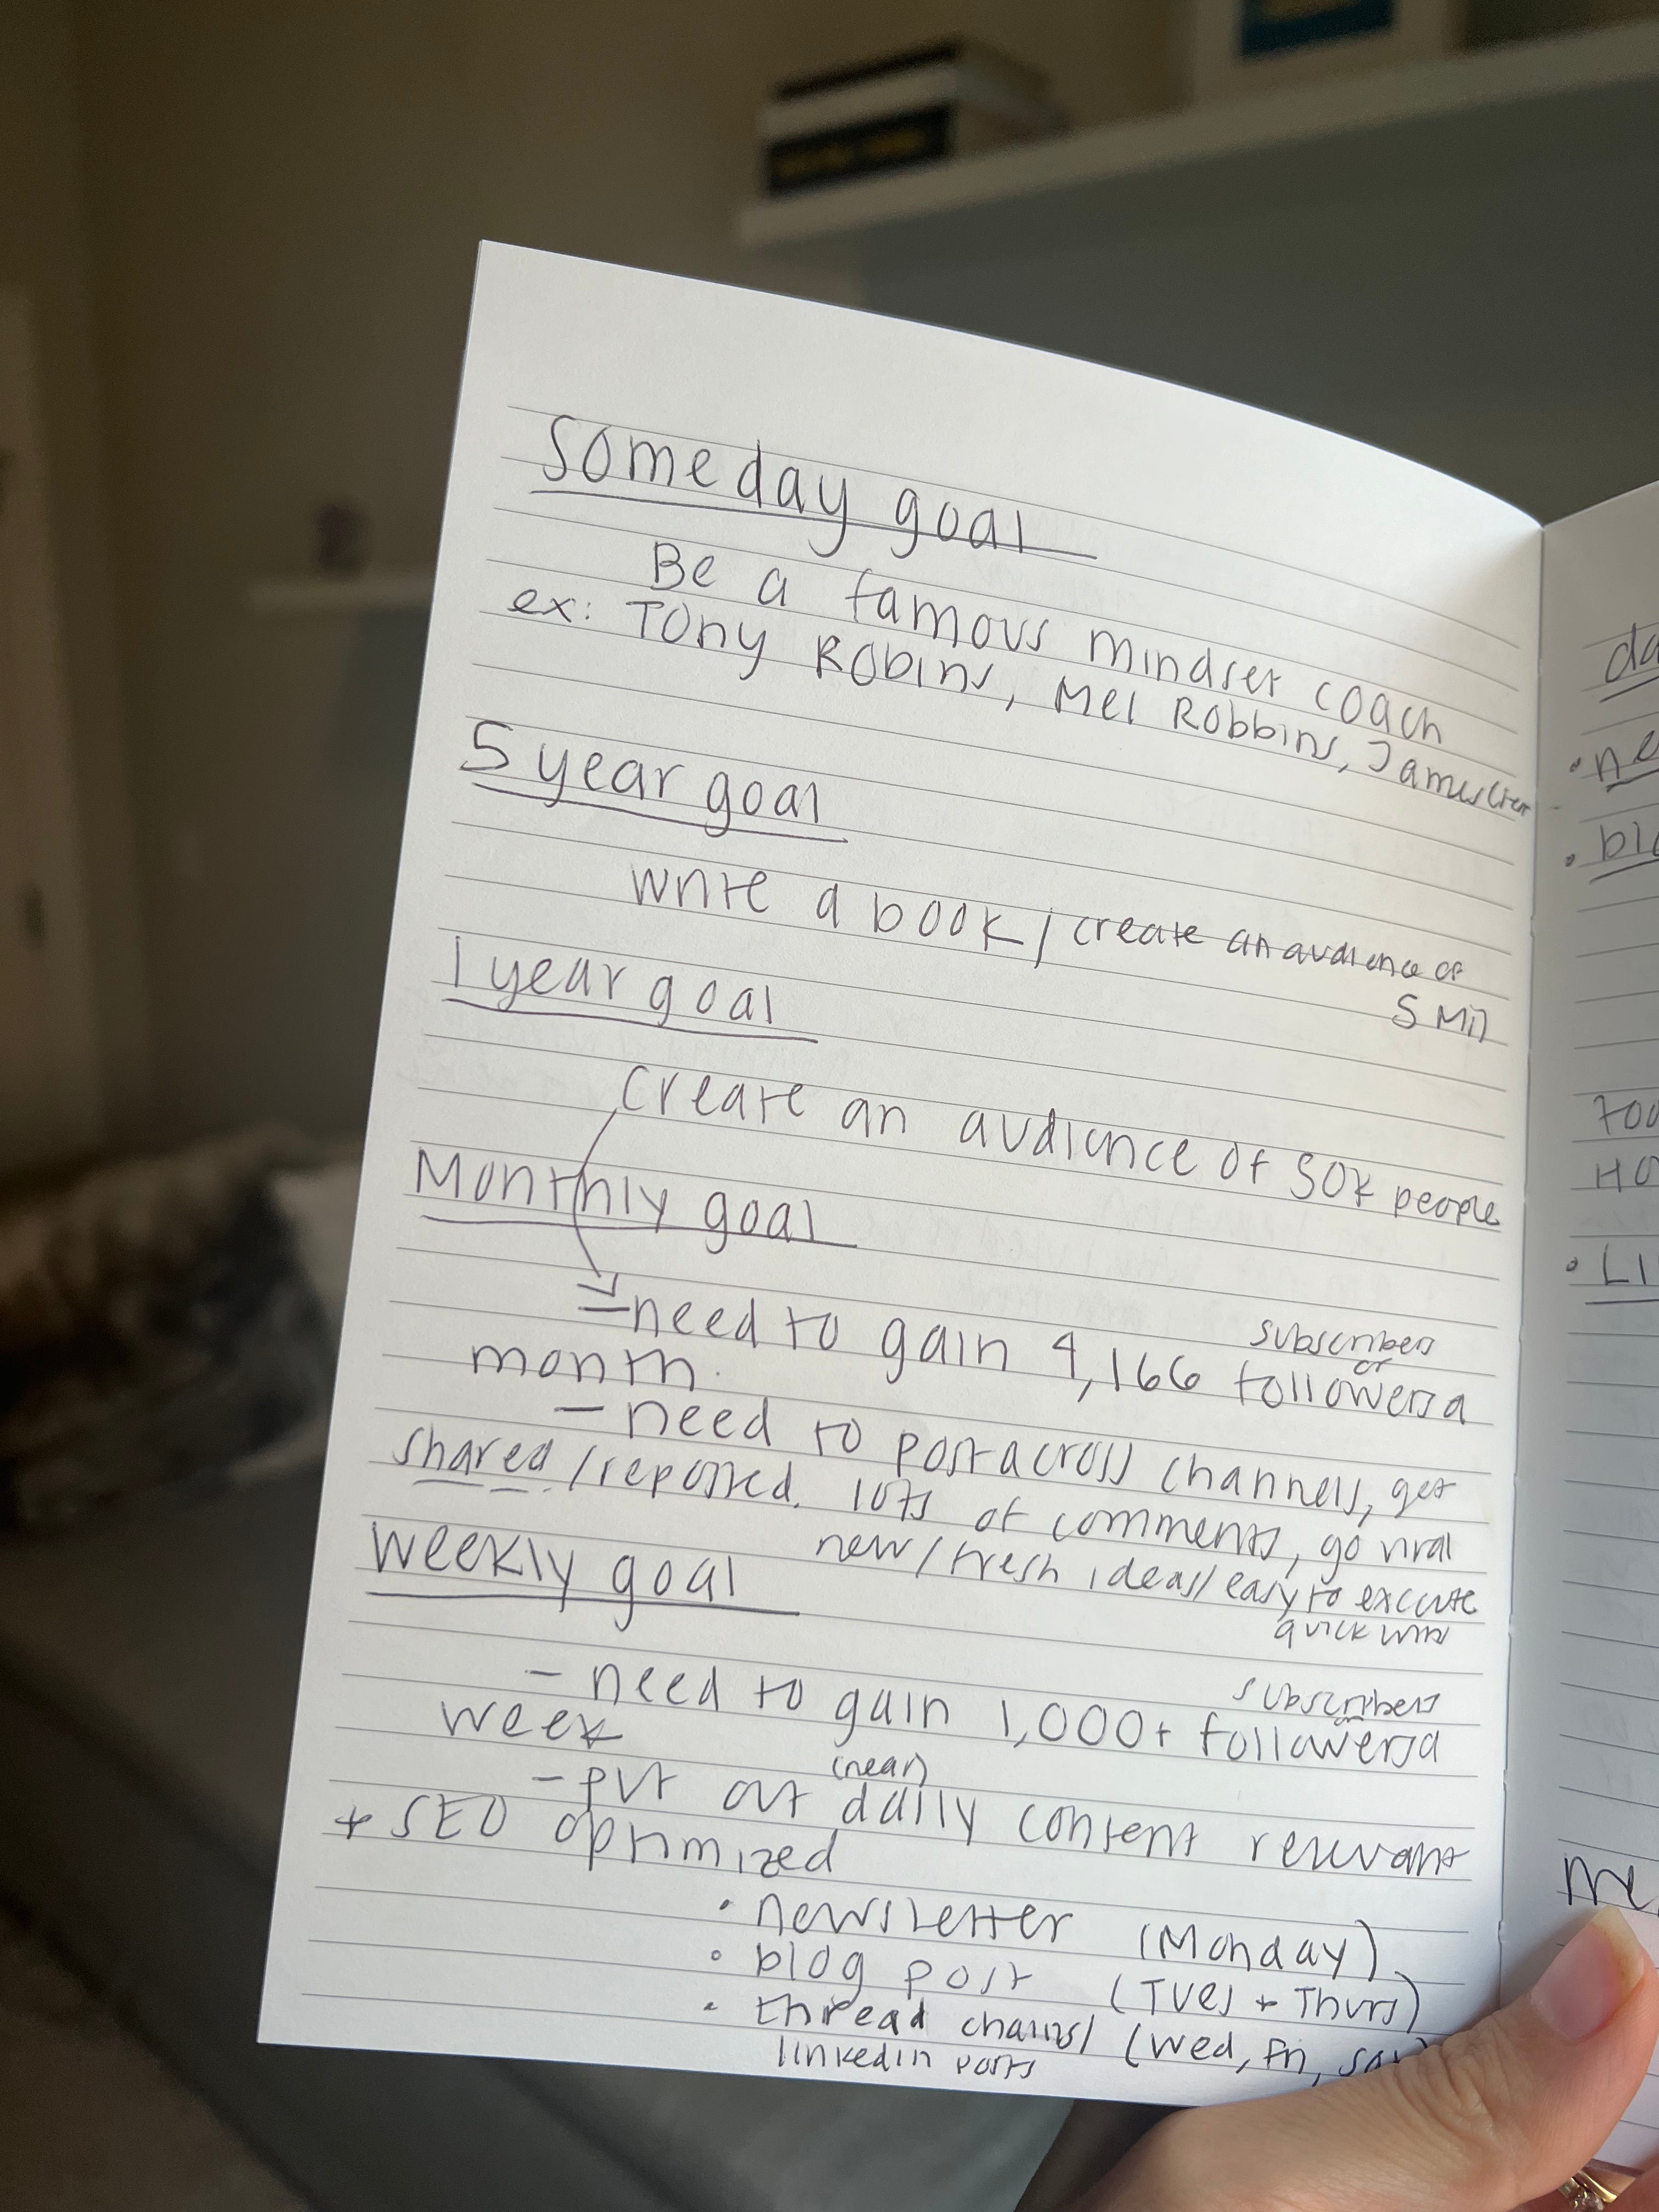 someday goal
Be a famous mindset coach
ex: Tony Robins, Mel Robbins, James Clear
5 year goal
write a book / create an audience of
5 mil
1 year goal
create an audience of 50k people
Monthly goal
subscribers
or
- need to gain 4,166 followers a
month.
- need to post across channels, get
shared / reposted. lots of comments, go viral
new / fresh ideas / easy to execute
quick wins
weekly goal
subscribers
or
- need to gain 1,000+ followers a
week
(near)
- put out daily content relevant
+ SEO optimized
• newsletter (Monday)
• blog post (Tues + Thurs)
• thread chains / (Wed, Fri, Sat)
linkedin posts
da
• ne
• blo
Foc
Ho
• Li
me